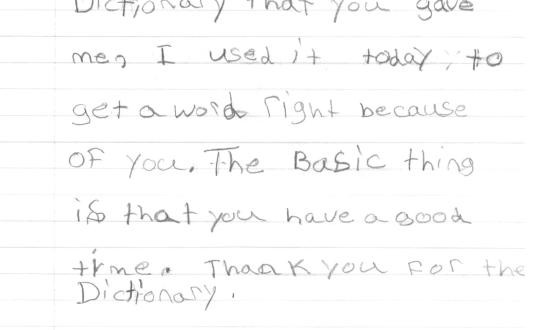 Dictionary that you gave
me, I used it today, to
get a word right because
of you. The Basic thing
is that you have a good
time. Thank you for the
Dictionary.